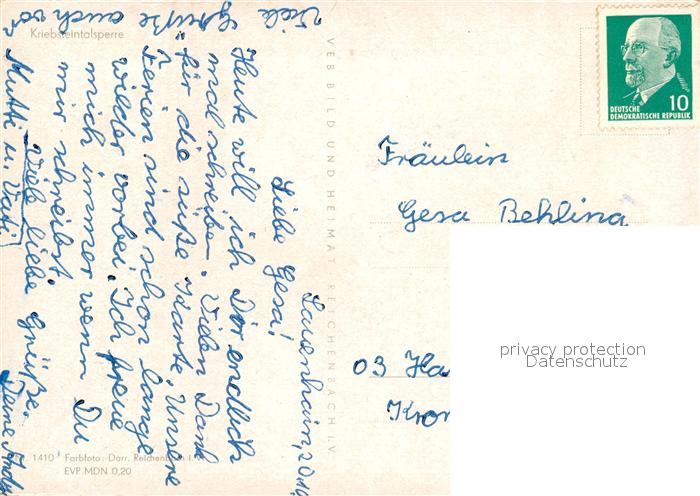 Kriebsteintalsperre
Lauenhain, 20.10
Liebe Gesa!
Heute will ich Dir endlich
mal schreiben. Vielen Dank
für die süße Karte. Unsere
Ferien sind schon lange
wieder vorbei. Ich freue
mich immer wenn Du
mir schreibst.
Viele liebe Grüße.
Deine
Viele
Grüße
auch von
Mutti u. Vati
1410 Farbfoto: Darr, Reichenbach i. V.
EVP MDN 0,20
VEB BILD UND HEIMAT REICHENBACH I. V.
10
DEUTSCHE
DEMOKRATISCHE REPUBLIK
Fräulein
Gesa Behling
03 Ha
Kron
privacy protection
Datenschutz